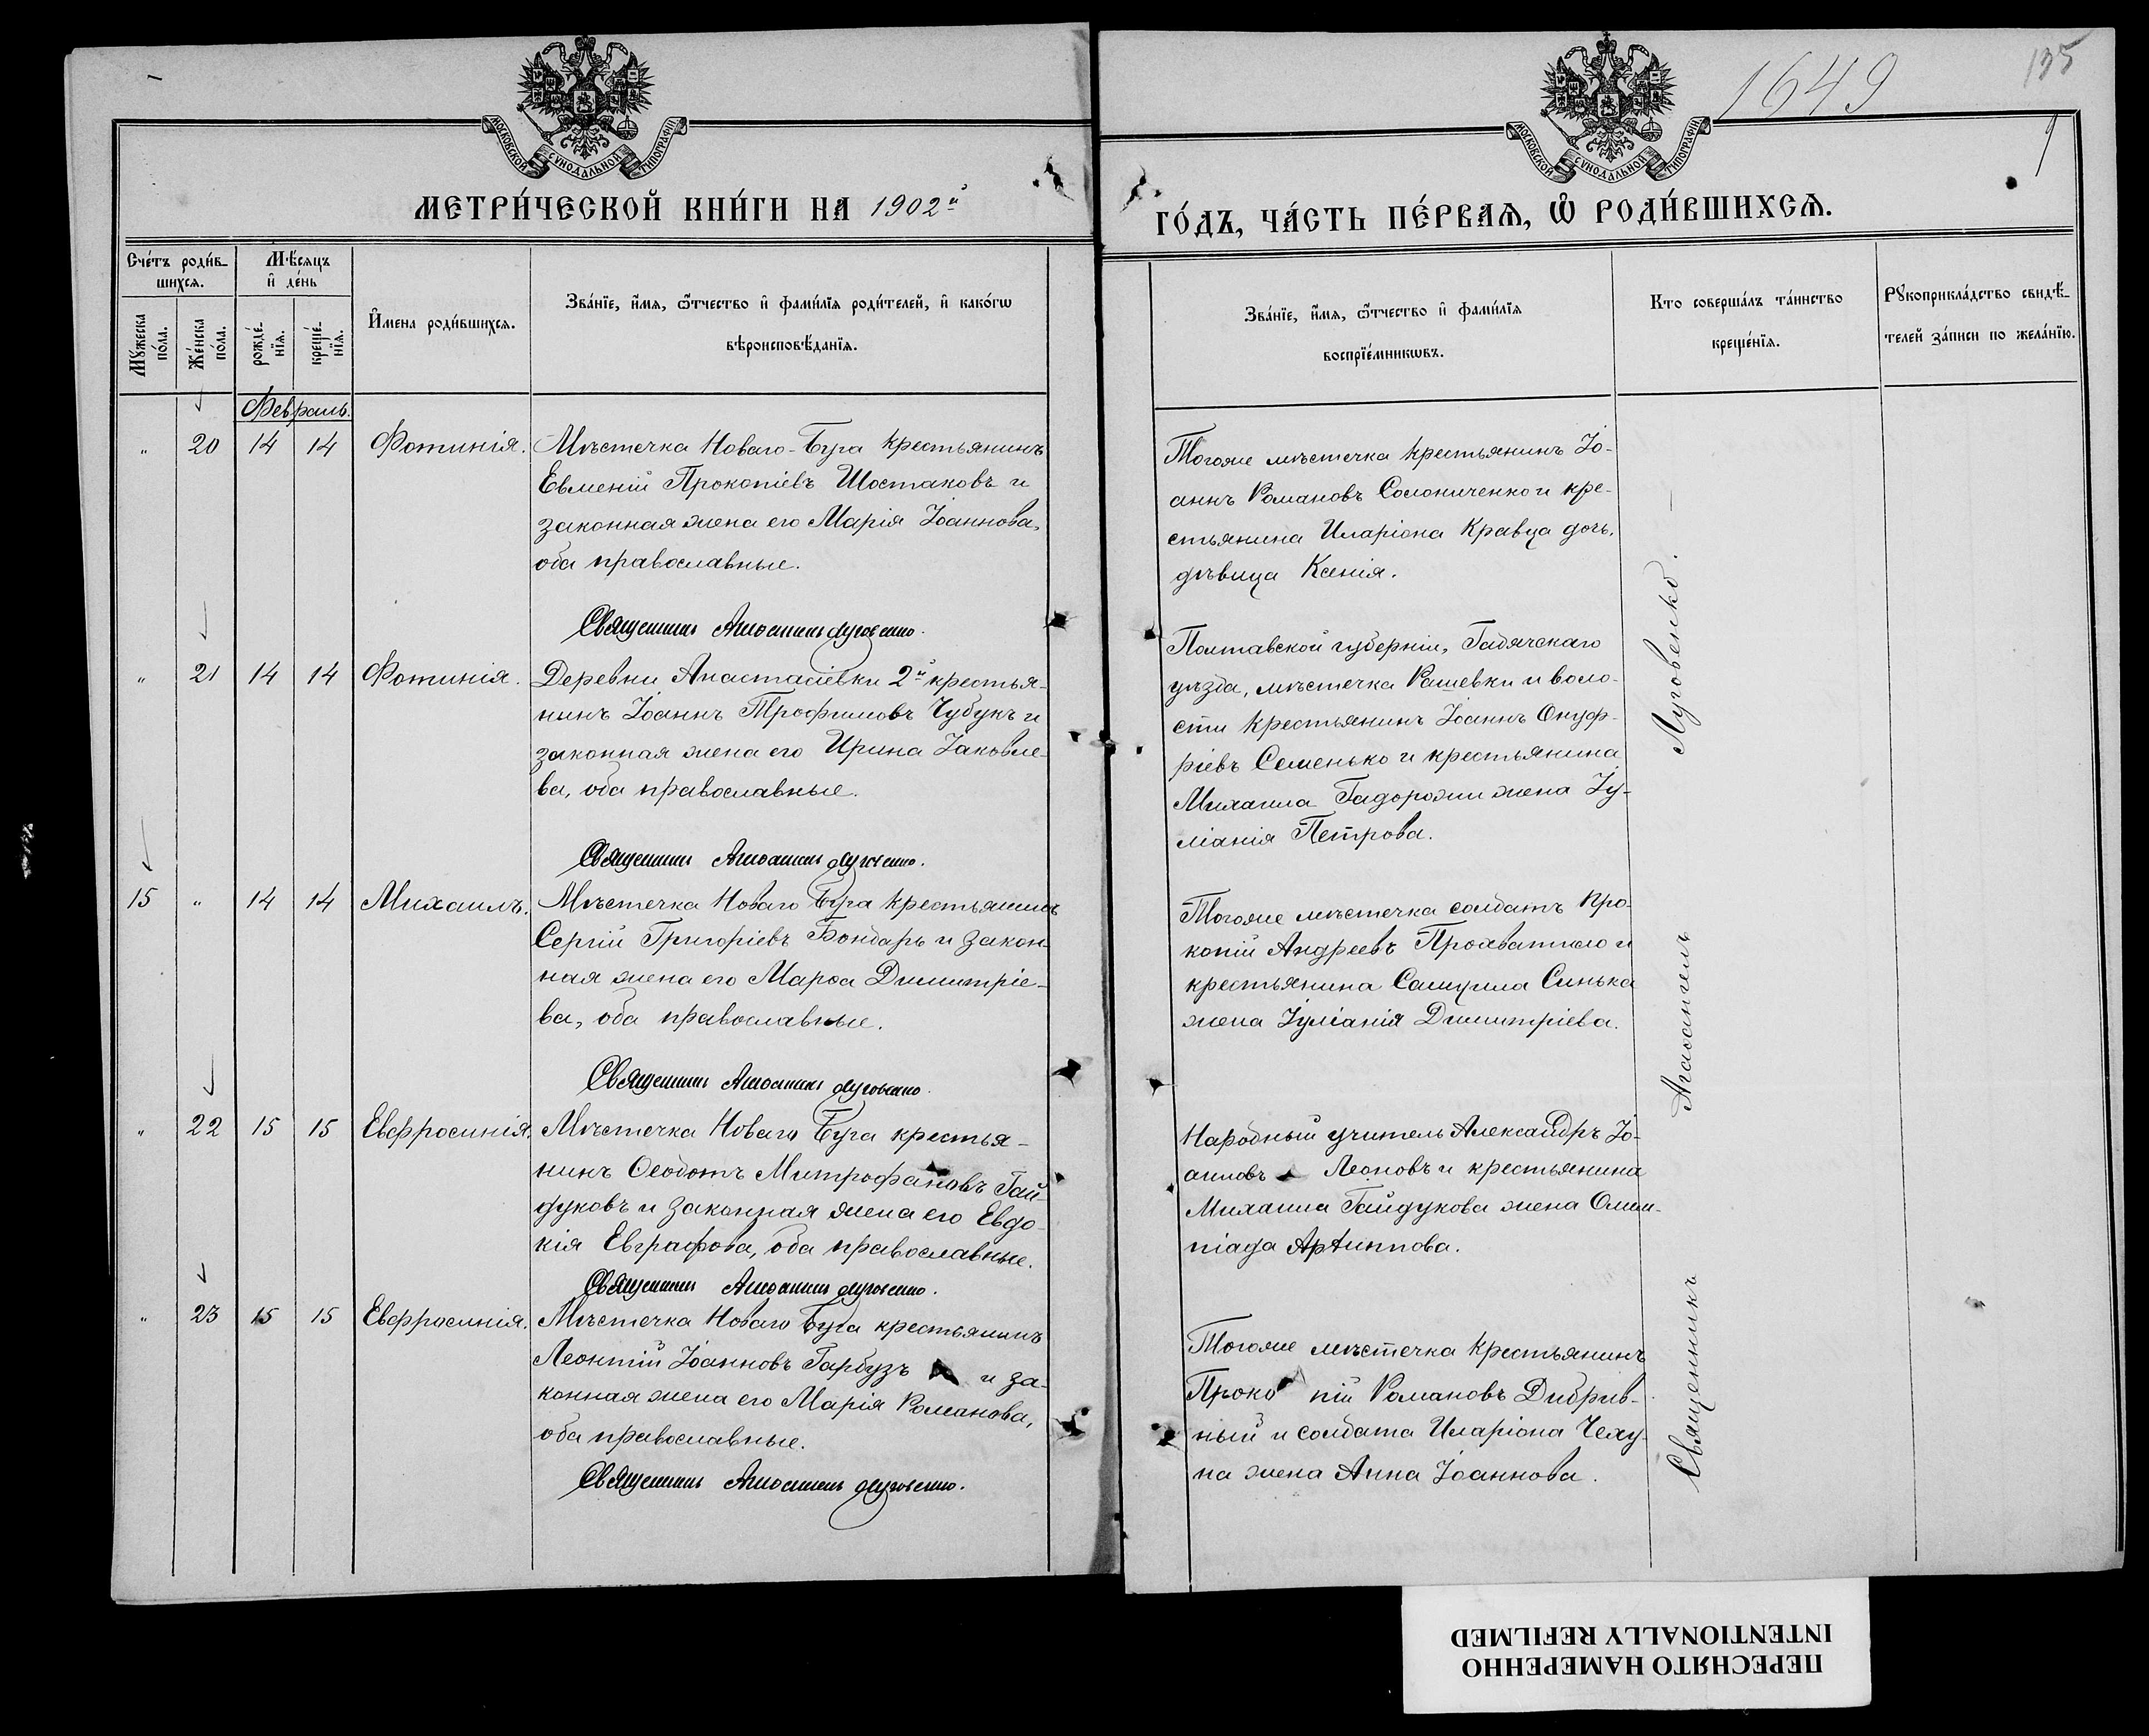 1649
135
МОСКОВСКОЙ СѴНОДАЛЬНОЙ ТИПОГРАФІИ
МОСКОВСКОЙ СѴНОДАЛЬНОЙ ТИПОГРАФІИ
МЕТРИ́ЧЕСКОЙ КНИ́ГИ НА 1902й
ГО́ДЪ, ЧА́СТЬ ПЕ́РВАѦ, Ѽ РОДИ́ВШИХСѦ.
Сче́тъ роди́в-
шихсѧ.
Мꙋ́жеска
по́ла.
Же́нска
по́ла.
Мѣ́сѧцъ
и҆ де́нь
рожде́-
нїѧ.
креще́-
нїѧ.
И҆мена роди́вшихсѧ.
Зва́нїе, и҆́мѧ, ѻ҆́тчество и҆ фами́лїѧ роди́телей, и҆ како́гѡ
вѣроисповѣ́данїѧ.
Зва́нїе, и҆́мѧ, ѻ҆́тчество и҆ фами́лїѧ
воспрїе́мникѡвъ.
Кто соверша́лъ та́инство
креще́нїѧ.
Рꙋкоприкла́дство свидѣ́-
телей за́писи по жела́нїю.
Февраль.
" 20 14 14 Фотинія.
Мѣстечка Новаго-Буга крестьянинъ
Евменій Прокопіевъ Шостаковъ и
законная жена его Марія Іоаннова,
оба православные.
Священникъ Агаѳангелъ Луговенко.
Тогоже мѣстечка крестьянинъ Іо-
аннъ Романовъ Солониченко и кре-
стьянина Иларіона Кравца дочь,
дѣвица Ксенія.
" 21 14 14 Фотинія.
Деревни Анастасіевки 2й крестья-
нинъ Іоаннъ Трофимовъ Чубукъ и
законная жена его Ирина Іаковле-
ва, оба православные.
Священникъ Агаѳангелъ Луговенко.
Полтавской губерніи, Гадячскаго
уѣзда, мѣстечка Рашевки и воло-
сти крестьянинъ Іоаннъ Онуф-
ріевъ Семенько и крестьянина
Михаила Гадорожи жена Іу-
ліанія Петрова.
15 " 14 14 Михаилъ.
Мѣстечка Новаго Буга крестьянинъ
Сергій Григоріевъ Бондарь и закон-
ная жена его Марѳа Димитріе-
ва, оба православные.
Священникъ Агаѳангелъ Луговенко.
Тогоже мѣстечка солдатъ Про-
копій Андреевъ Прохватило и
крестьянина Самуила Синька
жена Іуліанія Димитріева.
" 22 15 15 Евфросинія.
Мѣстечка Новаго Буга крестья-
нинъ Ѳеодотъ Митрофановъ Гай-
дуковъ и законная жена его Евдо-
кія Евграфова, оба православные.
Священникъ Агаѳангелъ Луговенко.
Народный учитель Александръ Іо-
анновъ Леоновъ и крестьянина
Михаила Гайдукова жена Олим-
піада Архиппова.
" 23 15 15 Евфросинія.
Мѣстечка Новаго Буга крестьянинъ
Леонтій Іоанновъ Гарбузъ и за-
конная жена его Марія Романова,
оба православные.
Священникъ Агаѳангелъ Луговенко.
Тогоже мѣстечка крестьянинъ
Прокопій Романовъ Дибрив-
ный и солдата Иларіона Чему-
на жена Анна Іоаннова.
Священникъ Агаѳангелъ Луговенко.
ПЕРЕСНЯТО НАМЕРЕННО
INTENTIONALLY REFILMED